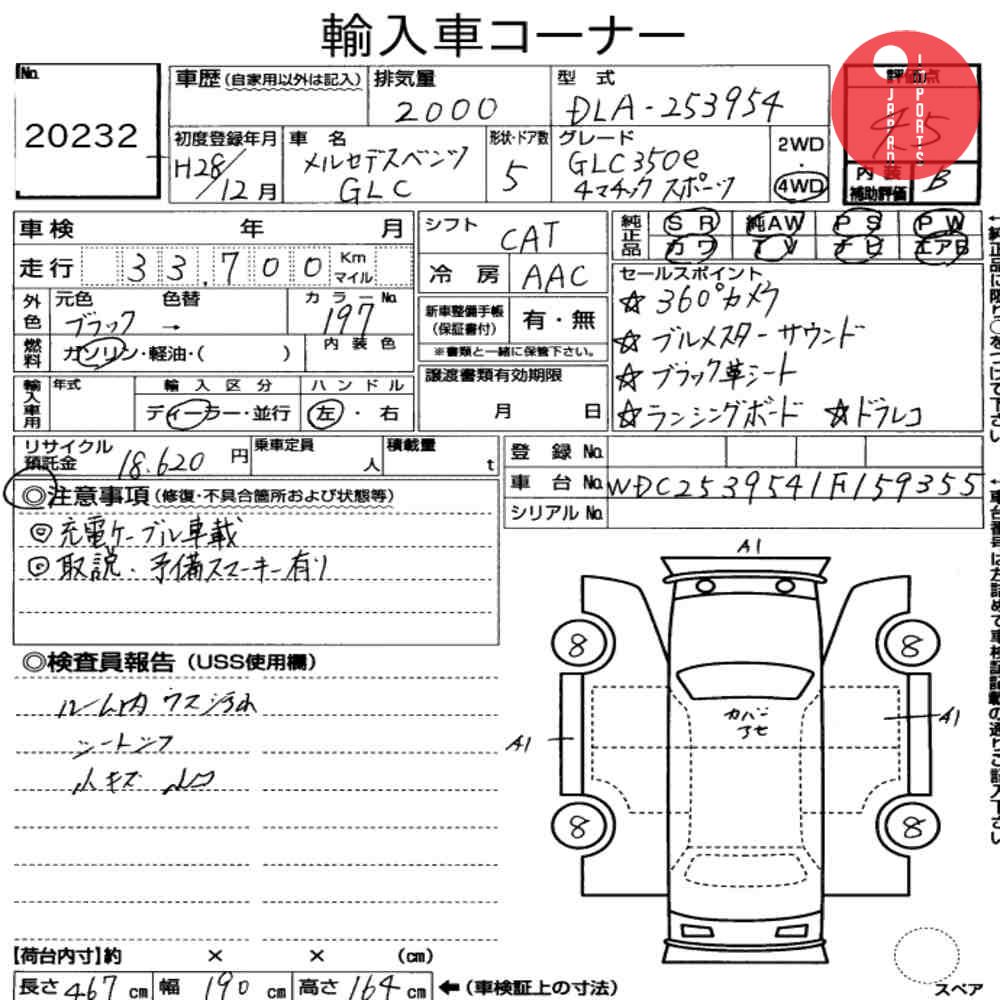 輸入車コーナー
No.
20232
車歴(自家用以外は記入)
排気量
2000
型式
DLA-253954
評価点
4.5
JAPAN
IMPORTS
初度登録年月
H28/12月
車名
メルセデスベンツ
GLC
形状・ドア数
5
グレード
GLC350e
4マチック スポーツ
2WD
・
4WD
内装
補助評価
B
車検 年 月
走行 33,700 Km マイル
シフト
CAT
冷房
AAC
純正品
SR 純AW PS PW
カワ TV ナビ エアB
外色
元色 色替
ブラック →
カラーNo.
197
燃料
ガソリン・軽油・( )
内装色
新車整備手帳
(保証書付)
有・無
※書類と一緒に保管下さい。
セールスポイント
☆ 360°カメラ
☆ ブルメスターサウンド
☆ ブラック革シート
☆ランニングボード ☆ドラレコ
輸入車用
年式
輸入区分
ディーラー・並行
ハンドル
左・右
譲渡書類有効期限
月 日
リサイクル
預託金
18.620 円
乗車定員
人
積載量
t
登録No.
車台No. WDC2539541F159355
シリアルNo.
◎注意事項(修復・不具合箇所および状態等)
◎充電ケーブル車載
◎取説・予備スマーキー有り
◎検査員報告(USS使用欄)
ルーム内 ウスヨゴレ
シートシワ
小キズ 凹
A1
8
8
カバー
アセ
A1
A1
8
8
【荷台内寸】約 × × (cm)
長さ 467 cm 幅 190 cm 高さ 164 cm ←(車検証上の寸法)
スペア
←純正品に限り○をつけて下さい
←車台番号は左詰めで車検証記載の通りご記入下さい